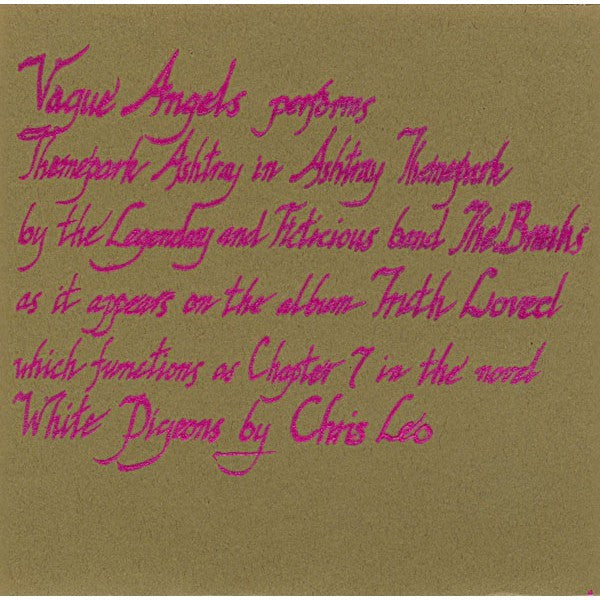 Vague Angels performs
Themepark Ashtray in Ashtray Themepark
by the Legendary and Ficticious band The
as it appears on the album Truth Loved
which functions as Chapter 7 in the novel
White Pigeons by Chris Leo